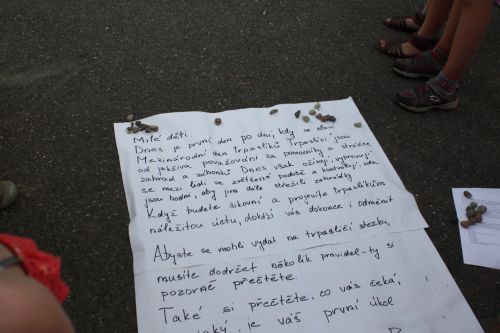 Milé děti.
Dnes je první den po dni, kdy se slaví
Mezinárodní den trpaslíků. Trpaslíci jsou
od jakživa považováni za pomocníky a strážce
zahrad a záhonků. Dnes však ožívají, vypravují
se mezi lidi ve zvětšené podobě a kontrolují, zda
jsou hodni, aby jim dále střežili zahrádky.
Když budete šikovní a projevíte trpaslíkům
náležitou úctu, dokáží vás dokonce i odměnit
Abyste se mohli vydat na trpasličí stezku,
musíte dodržet několik pravidel - ty si
pozorně přečtěte.
Také si přečtěte, co vás čeká,
jaký je váš první úkol.